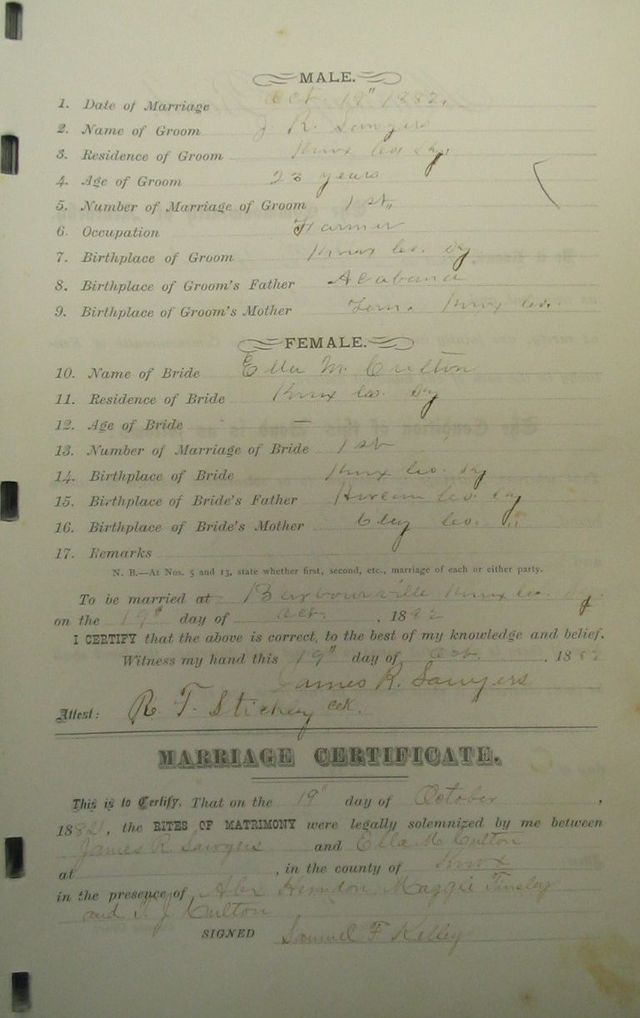 MALE.
1. Date of Marriage Oct. 19" 1882.
2. Name of Groom J. R. Sawyers
3. Residence of Groom Knox Co. Ky.
4. Age of Groom 23 years
5. Number of Marriage of Groom 1st
6. Occupation Farmer
7. Birthplace of Groom Knox Co. Ky
8. Birthplace of Groom's Father
9. Birthplace of Groom's Mother Knox Co.
FEMALE.
10. Name of Bride Ella M. Culton
11. Residence of Bride Knox Co. Ky
12. Age of Bride —
13. Number of Marriage of Bride 1st
14. Birthplace of Bride Knox Co. Ky
15. Birthplace of Bride's Father Co. Ky
16. Birthplace of Bride's Mother Clay Co. "
17. Remarks
N. B.—At Nos. 5 and 13, state whether first, second, etc., marriage of each or either party.
To be married at Barbourville Knox Co. Ky.
on the 19" day of Oct. 1882
I CERTIFY that the above is correct, to the best of my knowledge and belief.
Witness my hand this 19" day of Oct. , 1882
James R. Sawyers
Attest: R. T. Stickley clk.
MARRIAGE CERTIFICATE.
This is to Certify, That on the 19" day of October ,
1882, the RITES OF MATRIMONY were legally solemnized by me between
James R Sawyers and Ella M. Culton
at , in the county of Knox
in the presence of Alex Herndon Maggie Tinsley
and J Culton
SIGNED Samuel F Kelley